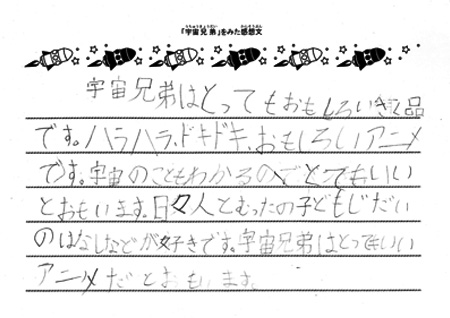 「宇宙兄弟」をみた感想文
宇宙兄弟はとってもおもしろい品
です。ハラハラ、ドキドキ、おもしろいアニメ
です。宇宙のこともわかるのでとてもいい
とおもいます。日々人とむったの子どもじだい
のはなしなどが好きです。宇宙兄弟はとってもいい
アニメだとおもいます。